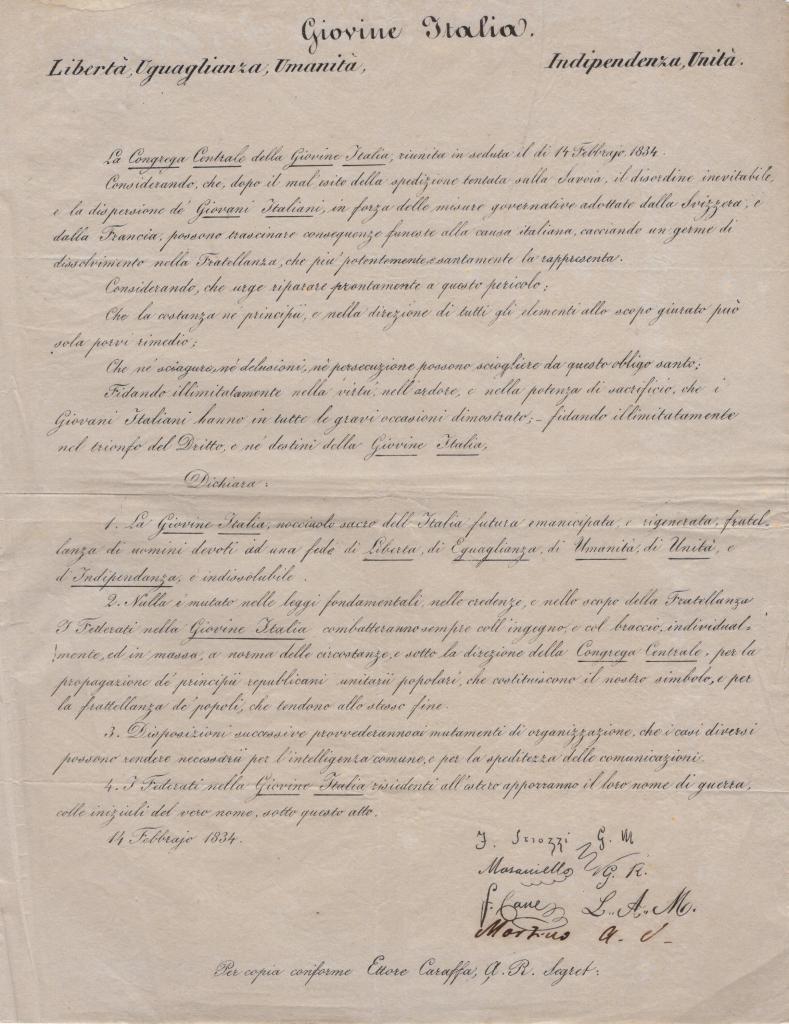 Giovine Italia.
Libertà, Uguaglianza, Umanità, Indipendenza, Unità.
La Congrega Centrale della Giovine Italia, riunita in seduta il dì 14 Febbrajo 1834.
Considerando, che, dopo il mal esito della spedizione tentata sulla Savoia, il disordine inevitabile,
e la dispersione de' Giovani Italiani, in forza delle misure governative adottate dalla Svizzera, e
dalla Francia, possono trascinare conseguenze funeste alla causa italiana, cacciando un germe di
dissolvimento nella Fratellanza, che più potentemente e santamente la rappresenta.
Considerando, che urge riparare prontamente a questo pericolo;
Che la costanza ne' principii, e nella direzione di tutti gli elementi allo scopo giurato può
sola porvi rimedio;
Che nè sciagure, nè delusioni, nè persecuzione possono sciogliere da questo obligo santo;
Fidando illimitatamente nella virtù, nell'ardore, e nella potenza di sacrificio, che i
Giovani Italiani hanno in tutte le gravi occasioni dimostrato; – fidando illimitatamente
nel trionfo del Dritto, e ne' destini della Giovine Italia,
Dichiara:
1. La Giovine Italia, nocciolo sacro dell'Italia futura emancipata, e rigenerata, fratel-
lanza di uomini devoti ad una fede di Libertà, di Eguaglianza, di Umanità, di Unità, e
d'Indipendanza, è indissolubile.
2. Nulla è mutato nelle leggi fondamentali, nelle credenze, e nello scopo della Fratellanza
I Fetterati nella Giovine Italia combatteranno sempre coll'ingegno, e col braccio, individual=
mente, ed in massa, a norma delle circostanze, e sotto la direzione della Congrega Centrale, per la
propagazione de' principii republicani unitarii popolari, che costituiscono il nostro simbolo, e per
la frattellanza de' popoli, che tendono allo stesso fine.
3. Disposizioni successive provvederanno ai mutamenti di organizzazione, che i casi diversi
possono rendere necessarii per l'intelligenza comune, e per la speditezza delle comunicazioni.
4. I Federati nella Giovine Italia risidenti all'estero apporranno il loro nome di guerra,
colle iniziali del vero nome, sotto questo atto.
14 Febbrajo 1834.
F. Strozzi G. M
Masaniello G. R.
f. Cane L. A. M.
Martino A.
Per copia conforme Ettore Caraffa, A. R. Segret: